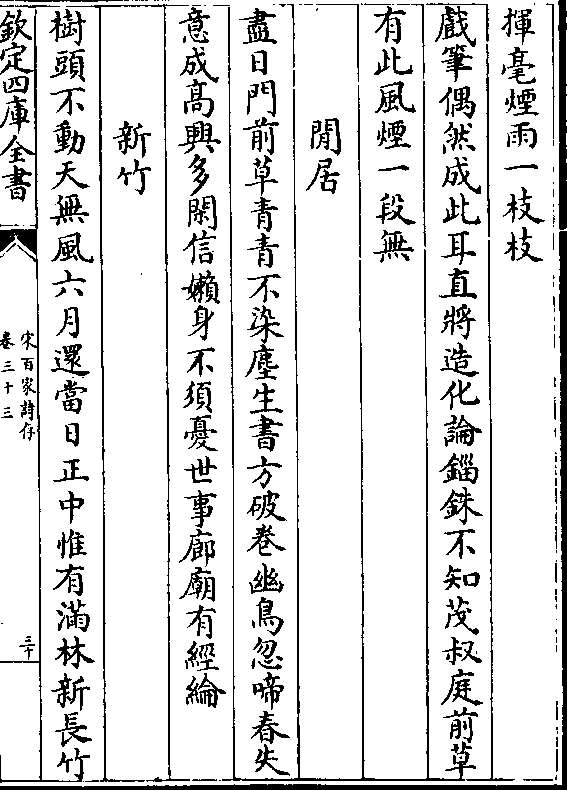 揮毫煙雨一枝枝
戲筆偶然成此耳直將造化論錙銖不知茂叔庭前草
有此風煙一段無
閒居
盡日門前草青青不染塵生書方破卷幽鳥忽啼春失
意成高興多閑信懶身不須憂世事廊廟有經綸
新竹
樹頭不動天無風六月還當日正中惟有滿林新長竹
欽定四庫全書
宋百家詩存
卷三十三
三十